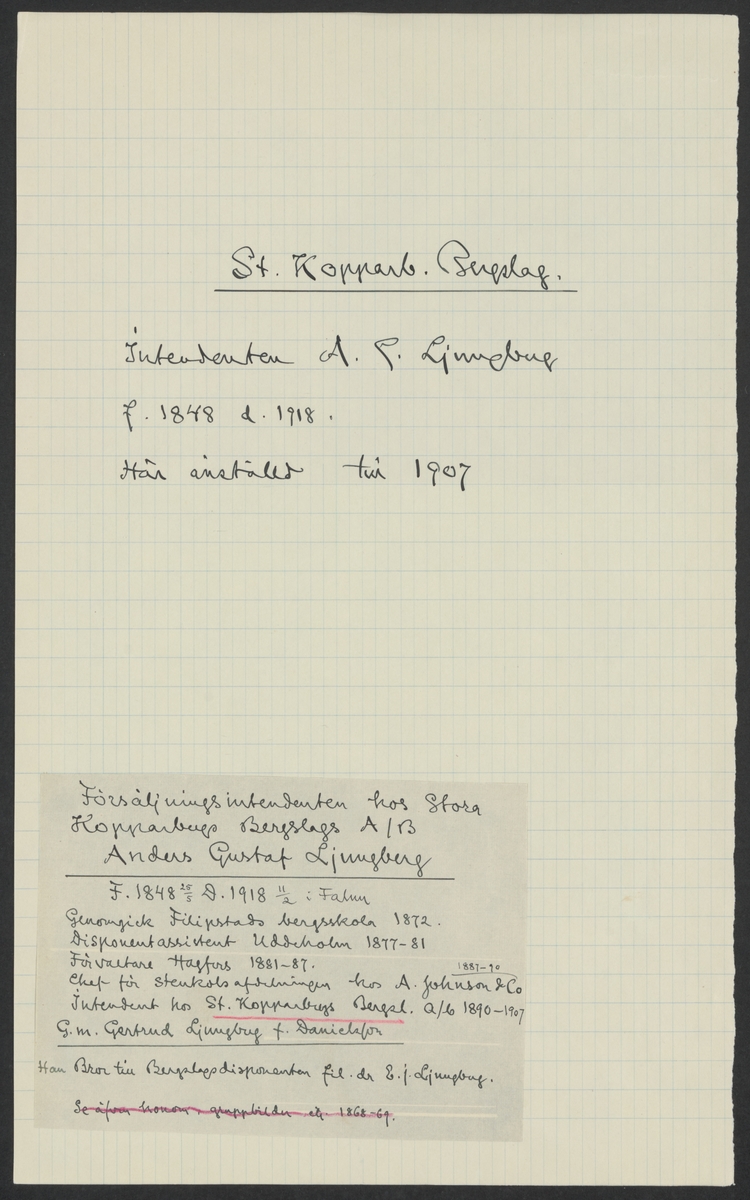 St. Kopparb. Bergslag.
Intendenten A. G. Ljungberg
f. 1848 d. 1918.
Här anställd till 1907
Försäljningsintendenten hos Stora
Kopparbergs Bergslags A/B
Anders Gustaf Ljungberg
F. 1848 25/5 D. 1918 11/2 i Falun
Genomgick Filipstads bergsskola 1872.
Disponentassistent Uddeholm 1877-81
Förvaltare Hagfors 1881-87.
1887-90
Chef för stenkolsafdelningen hos A. Johnson & Co
Intendent hos St. Kopparbergs Bergsl. A/b 1890-1907
G.m. Gertrud Ljungberg f. Danielsson
Han Bror till Bergslagsdisponenten fil. dr E. J. Ljungberg.
Se äfven honom, gruppbilder 1868-69.